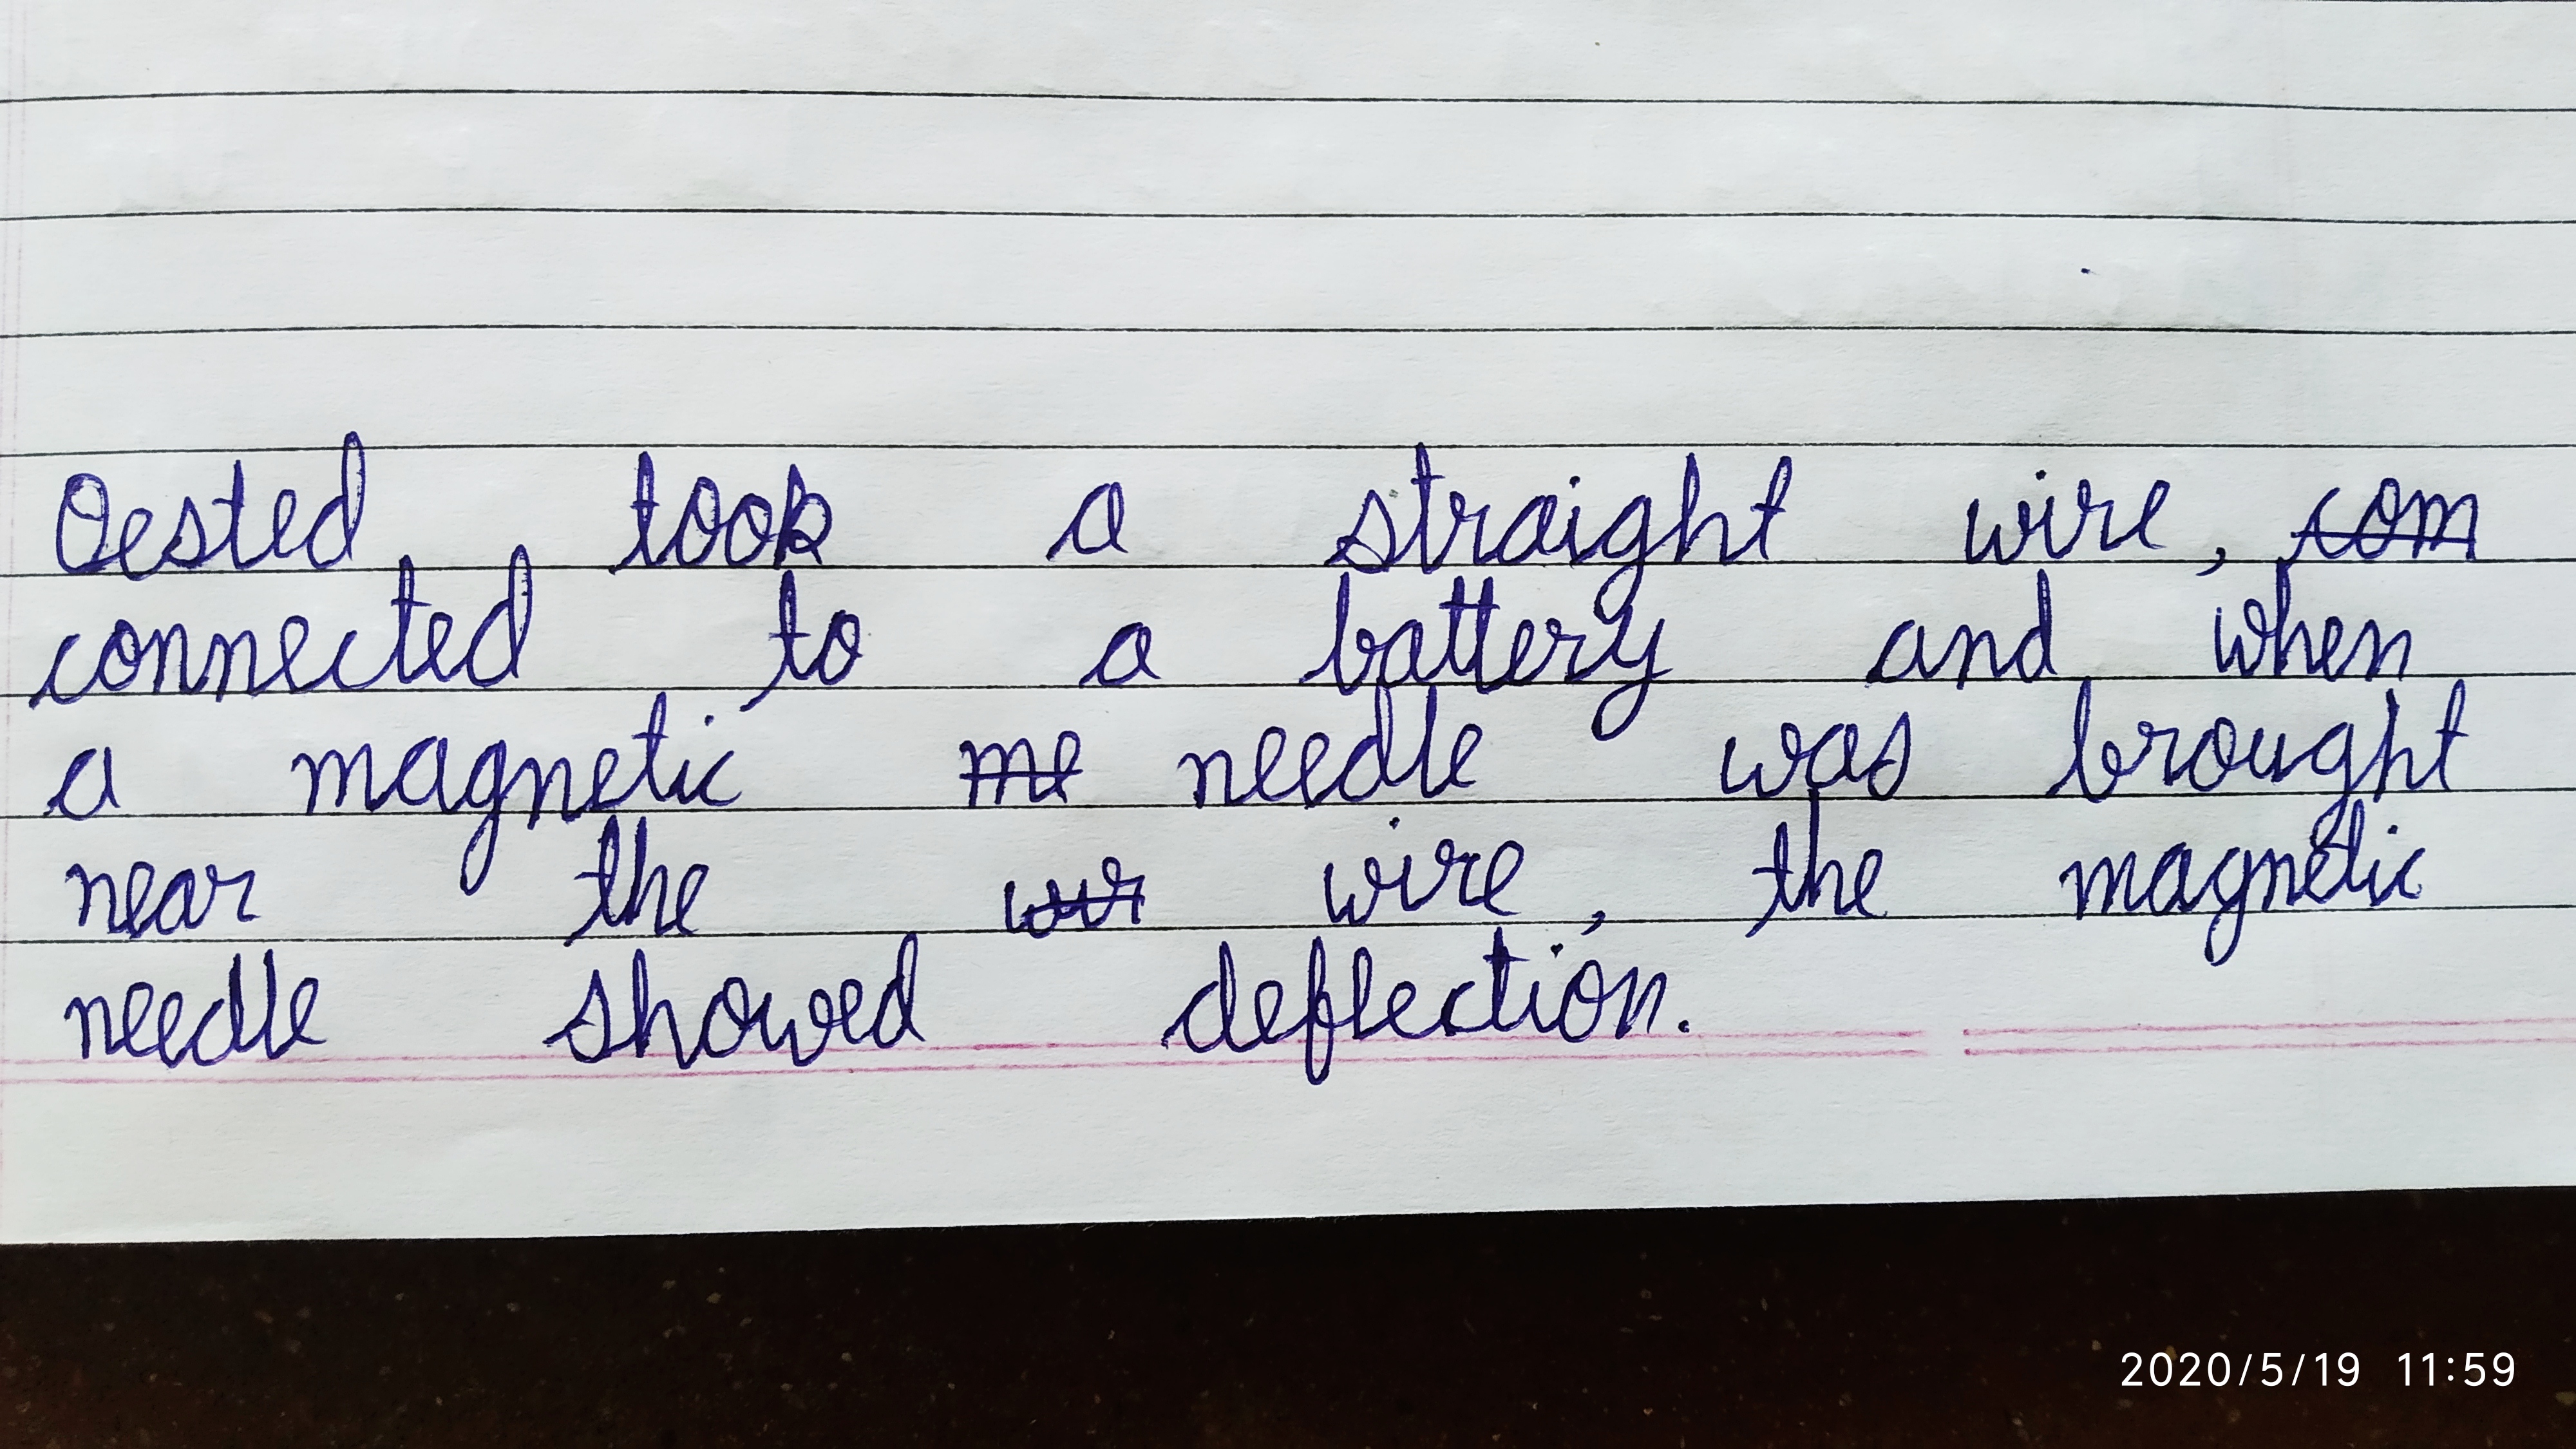 Oested took a straight wire, com
connected to a battery and when
a magnetic me needle was brought
near the wir wire, the magnetic
needle showed deflection.
2020/5/19 11:59